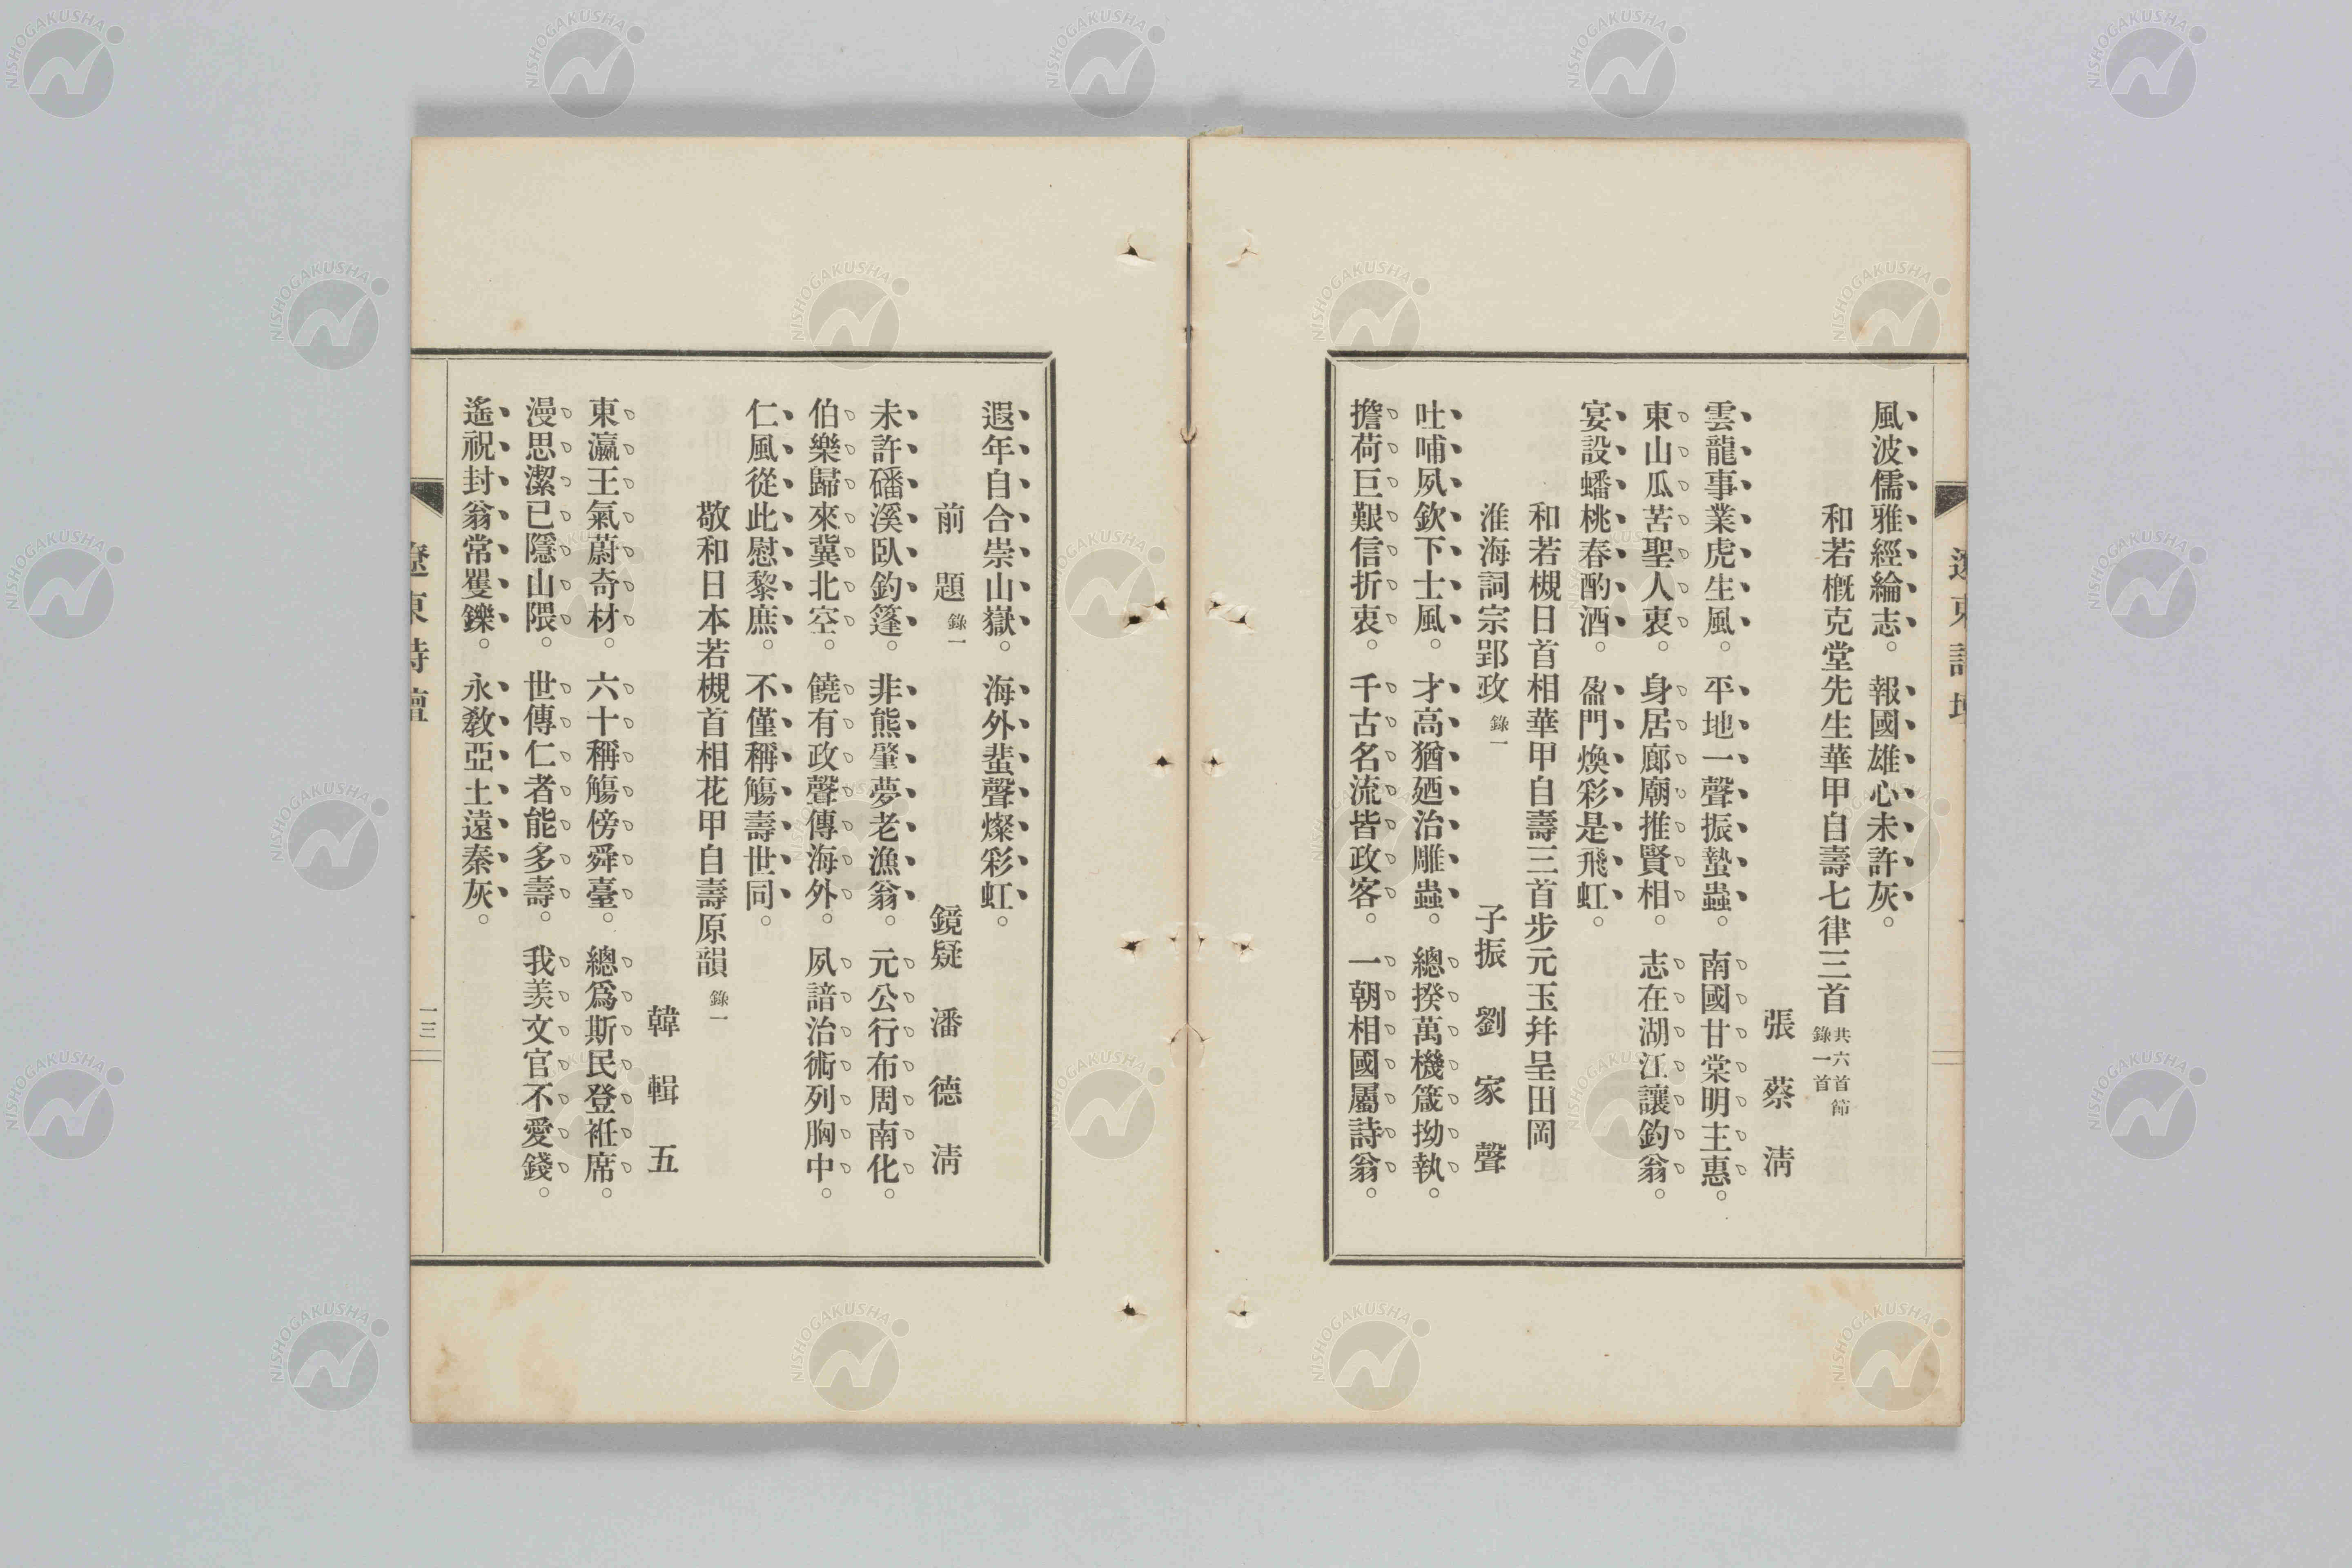 風波儒雅經綸志。報國雄心未許灰。
和若槪克堂先生華甲自壽七律三首 共六首節錄一首
張蔡淸
雲龍事業虎生風。平地一聲振蟄蟲。南國甘棠明主惠。
東山瓜苦聖人衷。身居廊廟推賢相。志在湖江讓釣翁。
宴設蟠桃春酌酒。盈門煥彩是飛虹。
和若槻日首相華甲自壽三首步元玉幷呈田岡
淮海詞宗郢政 錄一 子振 劉家聲
吐哺夙欽下士風。才高猶廼治雕蟲。總揆萬機箴拗執。
擔荷巨艱信折衷。千古名流皆政客。一朝相國屬詩翁。
遐年自合崇山嶽。海外蜚聲燦彩虹。
前題 錄一 鏡疑 潘德淸
未許磻溪臥釣篷。非熊肇夢老漁翁。元公行布周南化。
伯樂歸來冀北空。饒有政聲傳海外。夙諳治術列胸中。
仁風從此慰黎庶。不僅稱觴壽世同。
敬和日本若槻首相花甲自壽原韻 錄一
韓輯五
東瀛王氣蔚奇材。六十稱觴傍舜臺。總爲斯民登袵席。
漫思潔已隱山隈。世傳仁者能多壽。我羨文官不愛錢。
遙祝封翁常矍鑠。永敎亞土遠秦灰。
遼東詩壇
一三
NISHOGAKUSHA